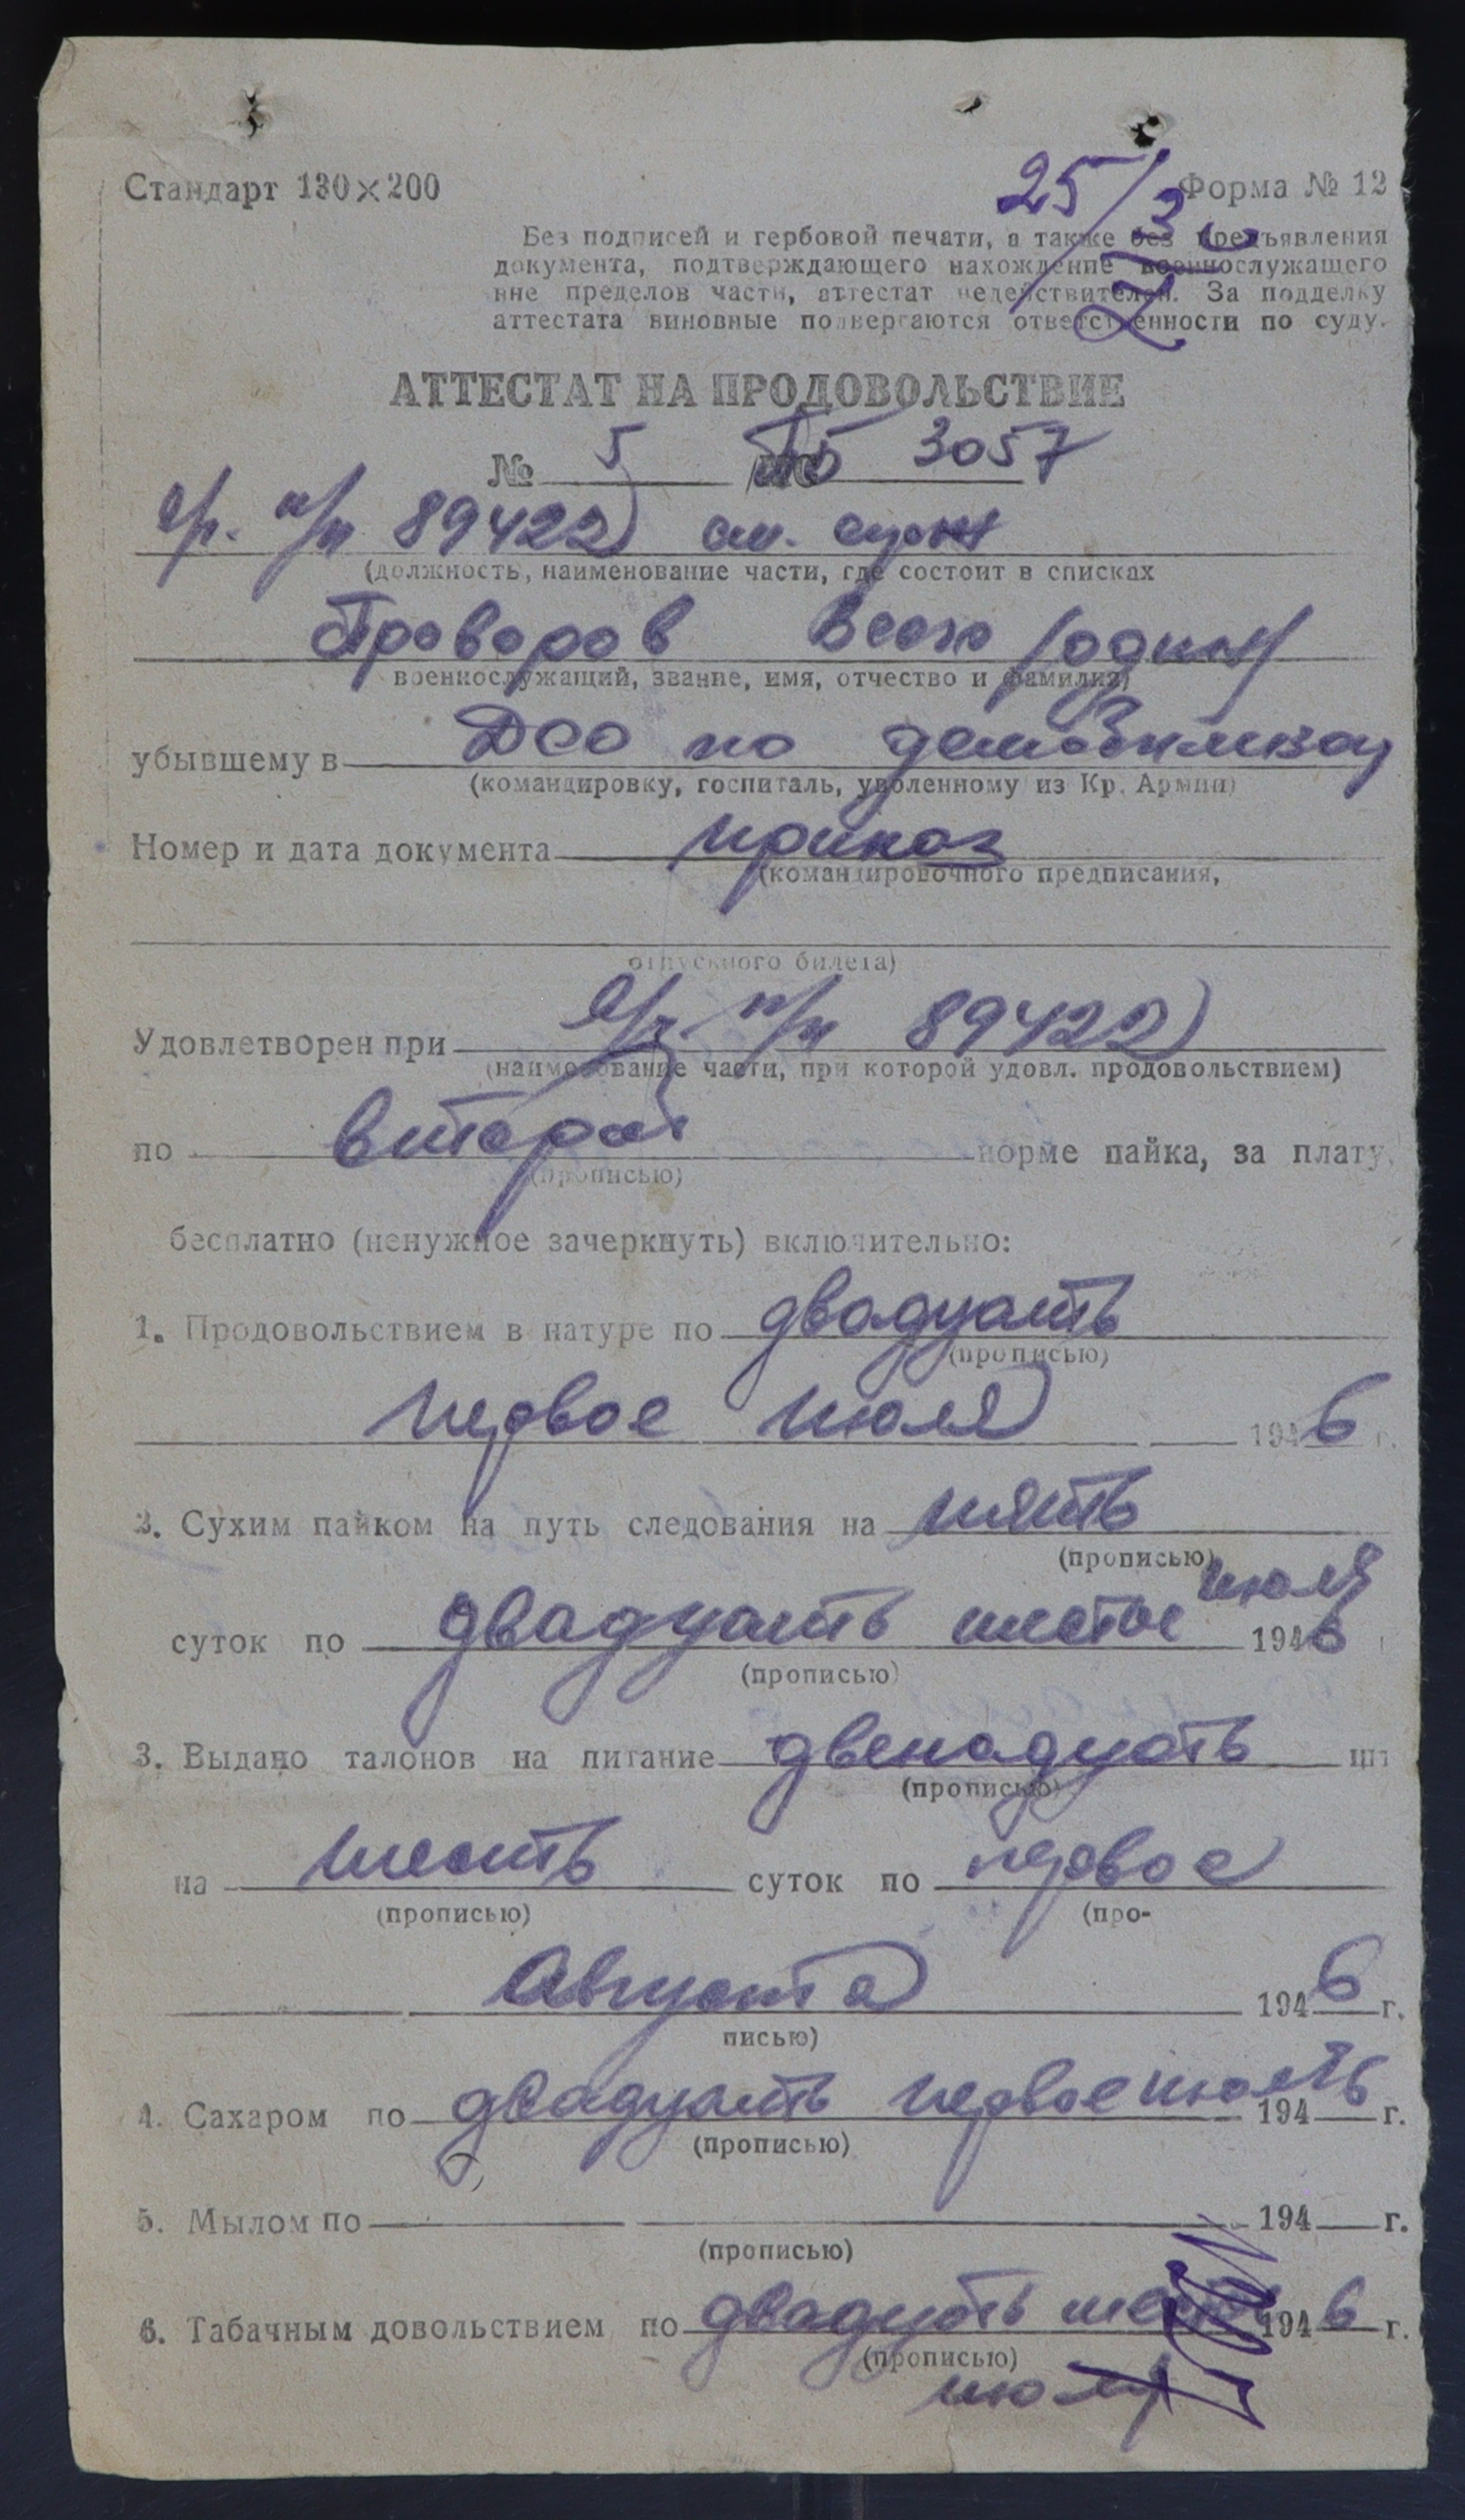 Стандарт 130×200
Форма № 12
25/
Без подписей и гербовой печати, а также без предъявления
документа, подтверждающего нахождение военнослужащего
вне пределов части, аттестат недействителен. За подделку
аттестата виновные подвергаются ответственности по суду.
АТТЕСТАТ НА ПРОДОВОЛЬСТВИЕ
№ 5 ПБ 3057
п/п 89422 ст. серж
(должность, наименование части, где состоит в списках
Проворов Всего /один/
военнослужащий, звание, имя, отчество и фамилия)
убывшему в ДСО по демобилизац
(командировку, госпиталь, уволенному из Кр. Армии)
Номер и дата документа приказ
(командировочного предписания,
отпускного билета)
Удовлетворен при п/п 89422
(наименование части, при которой удовл. продовольствием)
по второй норме пайка, за плату,
(прописью)
бесплатно (ненужное зачеркнуть) включительно:
1. Продовольствием в натуре по двадцать
(прописью)
первое июля 1946 г.
2. Сухим пайком на путь следования на пять
(прописью)
июля
суток по двадцать шестое 1946 г
(прописью)
3. Выдано талонов на питание двенадцать шт
(прописью)
на шесть суток по первое
(прописью) (про-
Августа 1946 г.
писью)
4. Сахаром по двадцать первое июля 1946 г.
(прописью)
5. Мылом по 194 г.
(прописью)
6. Табачным довольствием по двадцать 1946 г.
(прописью)
июля